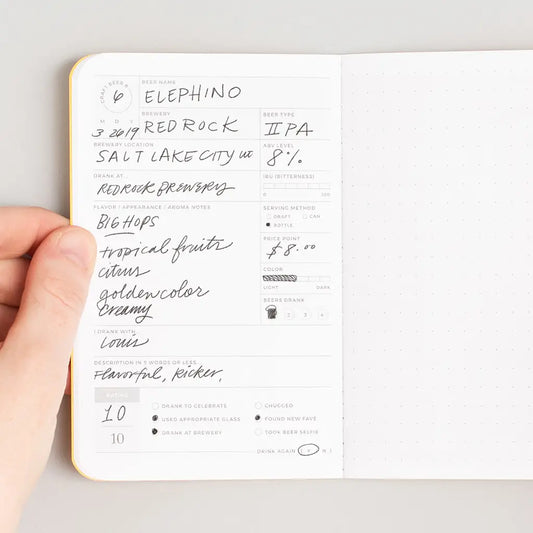 CRAFT BEER #
6
BEER NAME
ELEPHINO
M D Y
3 26 19
BREWERY
RED ROCK
BEER TYPE
IIPA
BREWERY LOCATION
SALT LAKE CITY UT
ABV LEVEL
8%
DRANK AT...
REDROCK BREWERY
IBU (BITTERNESS)
0 100
FLAVOR / APPEARANCE / AROMA NOTES
BIG HOPS
tropical fruits
citrus
golden color
creamy
SERVING METHOD
DRAFT CAN
BOTTLE
PRICE POINT
$8.00
COLOR
LIGHT DARK
BEERS DRANK
2 3 4
I DRANK WITH...
Louis
DESCRIPTION IN 5 WORDS OR LESS...
Flavorful, Kicker,
RATING
10
10
DRANK TO CELEBRATE CHUGGED
USED APPROPRIATE GLASS FOUND NEW FAVE
DRANK AT BREWERY TOOK BEER SELFIE
DRINK AGAIN Y N